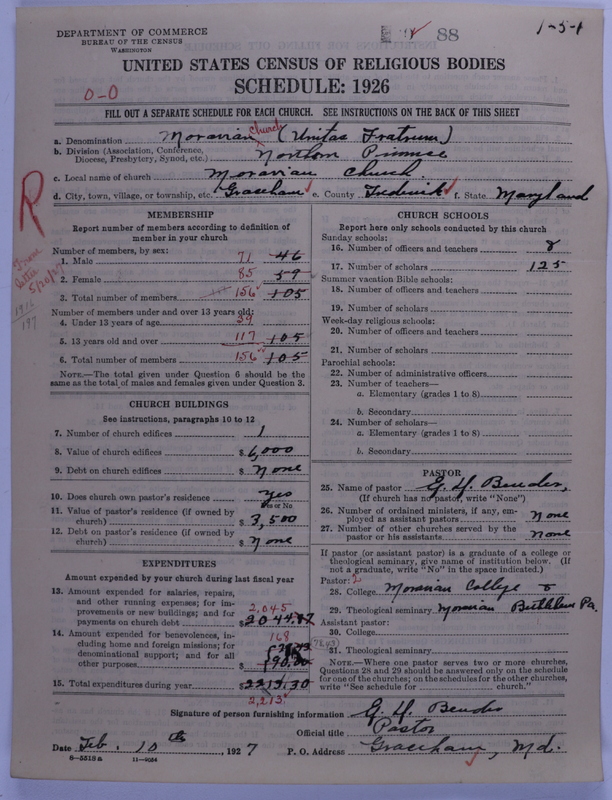 DEPARTMENT OF COMMERCE
BUREAU OF THE CENSUS
WASHINGTON
88
1-5-1
UNITED STATES CENSUS OF RELIGIOUS BODIES
SCHEDULE: 1926
0-0
FILL OUT A SEPARATE SCHEDULE FOR EACH CHURCH. SEE INSTRUCTIONS ON THE BACK OF THIS SHEET
a. Denomination Moravian Church (Unitas Fratrum)
b. Division (Association, Conference, Diocese, Presbytery, Synod, etc.) Northern Province
c. Local name of church Moravian Church
d. City, town, village, or township, etc. Graceham e. County Frederick f. State Maryland
R
From letter 5/20/27
MEMBERSHIP
Report number of members according to definition of member in your church
Number of members, by sex:
1. Male 71 46
2. Female 85 59
3. Total number of members 156 105
Number of members under and over 13 years old:
4. Under 13 years of age 39
5. 13 years old and over 117 105
6. Total number of members 156 105
NOTE.—The total given under Question 6 should be the same as the total of males and females given under Question 3.
CHURCH BUILDINGS
See instructions, paragraphs 10 to 12
7. Number of church edifices 1
8. Value of church edifices $ 6,000
9. Debt on church edifices $ None
10. Does church own pastor's residence Yes
Yes or No
11. Value of pastor's residence (if owned by church) $ 3,500
12. Debt on pastor's residence (if owned by church) $ None
EXPENDITURES
Amount expended by your church during last fiscal year
13. Amount expended for salaries, repairs, and other running expenses; for improvements or new buildings; and for payments on church debt 2,045 $ 2044.87
14. Amount expended for benevolences, including home and foreign missions; for denominational support; and for all other purposes 168 $ 90.00
15. Total expenditures during year $ 2213.30
2,213
CHURCH SCHOOLS
Report here only schools conducted by this church
Sunday schools:
16. Number of officers and teachers 8
17. Number of scholars 125
Summer vacation Bible schools:
18. Number of officers and teachers
19. Number of scholars
Week-day religious schools:
20. Number of officers and teachers
21. Number of scholars
Parochial schools:
22. Number of administrative officers
23. Number of teachers—
a. Elementary (grades 1 to 8)
b. Secondary
24. Number of scholars—
a. Elementary (grades 1 to 8)
b. Secondary
PASTOR
25. Name of pastor G. H. Bender,
(If church has no pastor, write "None")
26. Number of ordained ministers, if any, employed as assistant pastors None
27. Number of other churches served by the pastor or his assistants None
If pastor (or assistant pastor) is a graduate of a college or theological seminary, give name of institution below. (If not a graduate, write "No" in the space indicated.)
Pastor: 2
28. College Moravian College &
29. Theological seminary Moravian Bethlehem Pa.
Assistant pastor:
30. College
31. Theological seminary
NOTE.—Where one pastor serves two or more churches, Questions 28 and 29 should be answered only on the schedule for one of the churches; on the schedules for the other churches, write "See schedule for church."
Signature of person furnishing information G. H. Bender
Official title Pastor
Date Feb. 10th, 1927 P. O. Address Graceham, Md.
8-5518a 11-9064